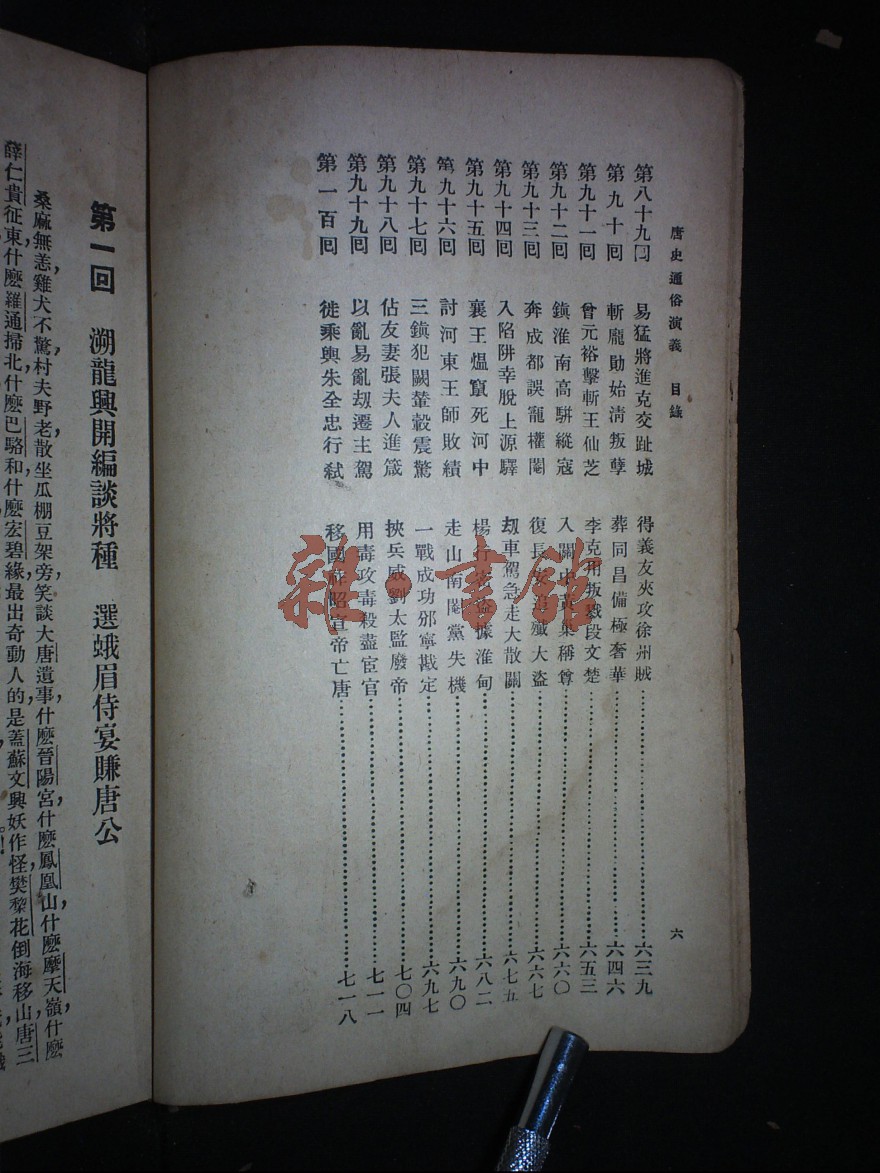 唐史通俗演義　目錄
六
第八十九囘　易猛將進克交趾城　得義友夾攻徐州賊……六三九
第九十囘　斬龐勛始清叛孽　葬同昌備極奢華……六四六
第九十一囘　曾元裕擊斬王仙芝　李克用叛戮段文楚……六五三
第九十二囘　鎮淮南高駢縱寇　入關中黃巢稱尊……六六〇
第九十三囘　奔成都誤寵權閹　復長安追殲大盜……六六七
第九十四囘　入陷阱幸脫上源驛　劫車駕急走大散關……六七五
第九十五囘　襄王熅竄死河中　楊行密盜據淮甸……六八二
第九十六囘　討河東王師敗績　走山南閹黨失機……六九〇
第九十七囘　三鎮犯闕輦轂震驚　一戰成功邠寧戡定……六九七
第九十八囘　佔友妻張夫人進箴　挾兵威劉太監廢帝……七〇四
第九十九囘　以亂易亂劫遷主駕　用毒攻毒殺盡宦官……七一一
第一百囘　徙乘輿朱全忠行弒　移國祚昭宣帝亡唐……七一八
雜·書館
第一回　溯龍興開編談將種　選蛾眉侍宴賺唐公
桑麻無恙，雞犬不驚，村夫野老，散坐瓜棚豆架旁，笑談大唐遺事，什麽晉陽宮，什麽鳳凰山，什麽摩天嶺，什麽
薛仁貴征東，什麽羅通掃北，什麽巴駱和，什麽宏碧緣，最出奇動人的，是蓋蘇文興妖作怪，樊黎花倒海移山，唐三